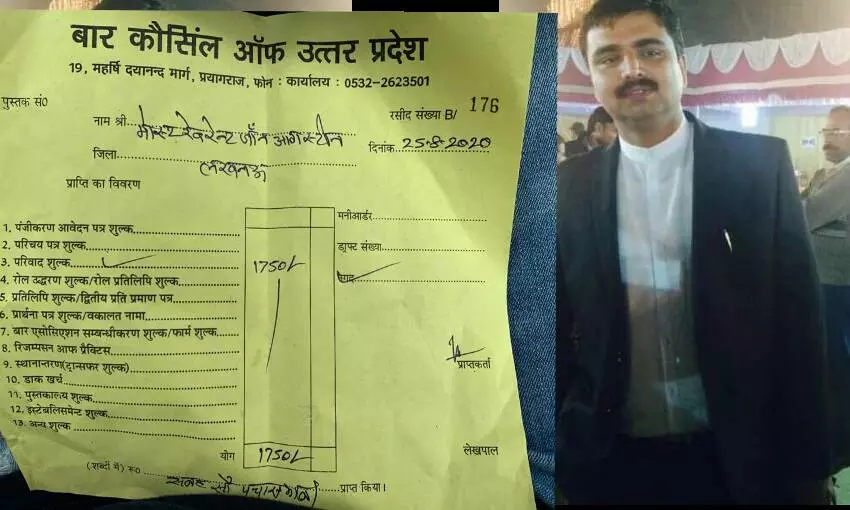 बार कौसिंल ऑफ उत्तर प्रदेश
19, महर्षि दयानन्द मार्ग, प्रयागराज, फोन : कार्यालय : 0532-2623501
पुस्तक सं0
रसीद संख्या B/ 176
नाम श्री मोस्ट रेवरेन्ट जॉन आगस्टीन
दिनांक 25-8-2020
जिला लखनऊ
प्राप्ति का विवरण
मनीआर्डर
1. पंजीकरण आवेदन पत्र शुल्क
2. परिचय पत्र शुल्क
ड्राफ्ट संख्या
3. परिवाद शुल्क 1750/-
4. रोल उद्धरण शुल्क/रोल प्रतिलिपि शुल्क
5. प्रतिलिपि शुल्क/द्वितीय प्रति प्रमाण पत्र
6. प्रार्थना पत्र शुल्क/वकालत नामा
7. बार एसोसिएशन सम्बन्धीकरण शुल्क/फार्म शुल्क
8. रिजम्पसन आफ प्रैक्टिस
9. स्थानान्तरण(ट्रान्सफर शुल्क)
प्राप्तकर्ता
10. डाक खर्च
11. पुस्तकालय शुल्क
12. इस्टेबलिसमेन्ट शुल्क
13. अन्य शुल्क
योग 1750/-
लेखपाल
(शब्दों में) रू0 सत्रह सौ पचास प्राप्त किया।